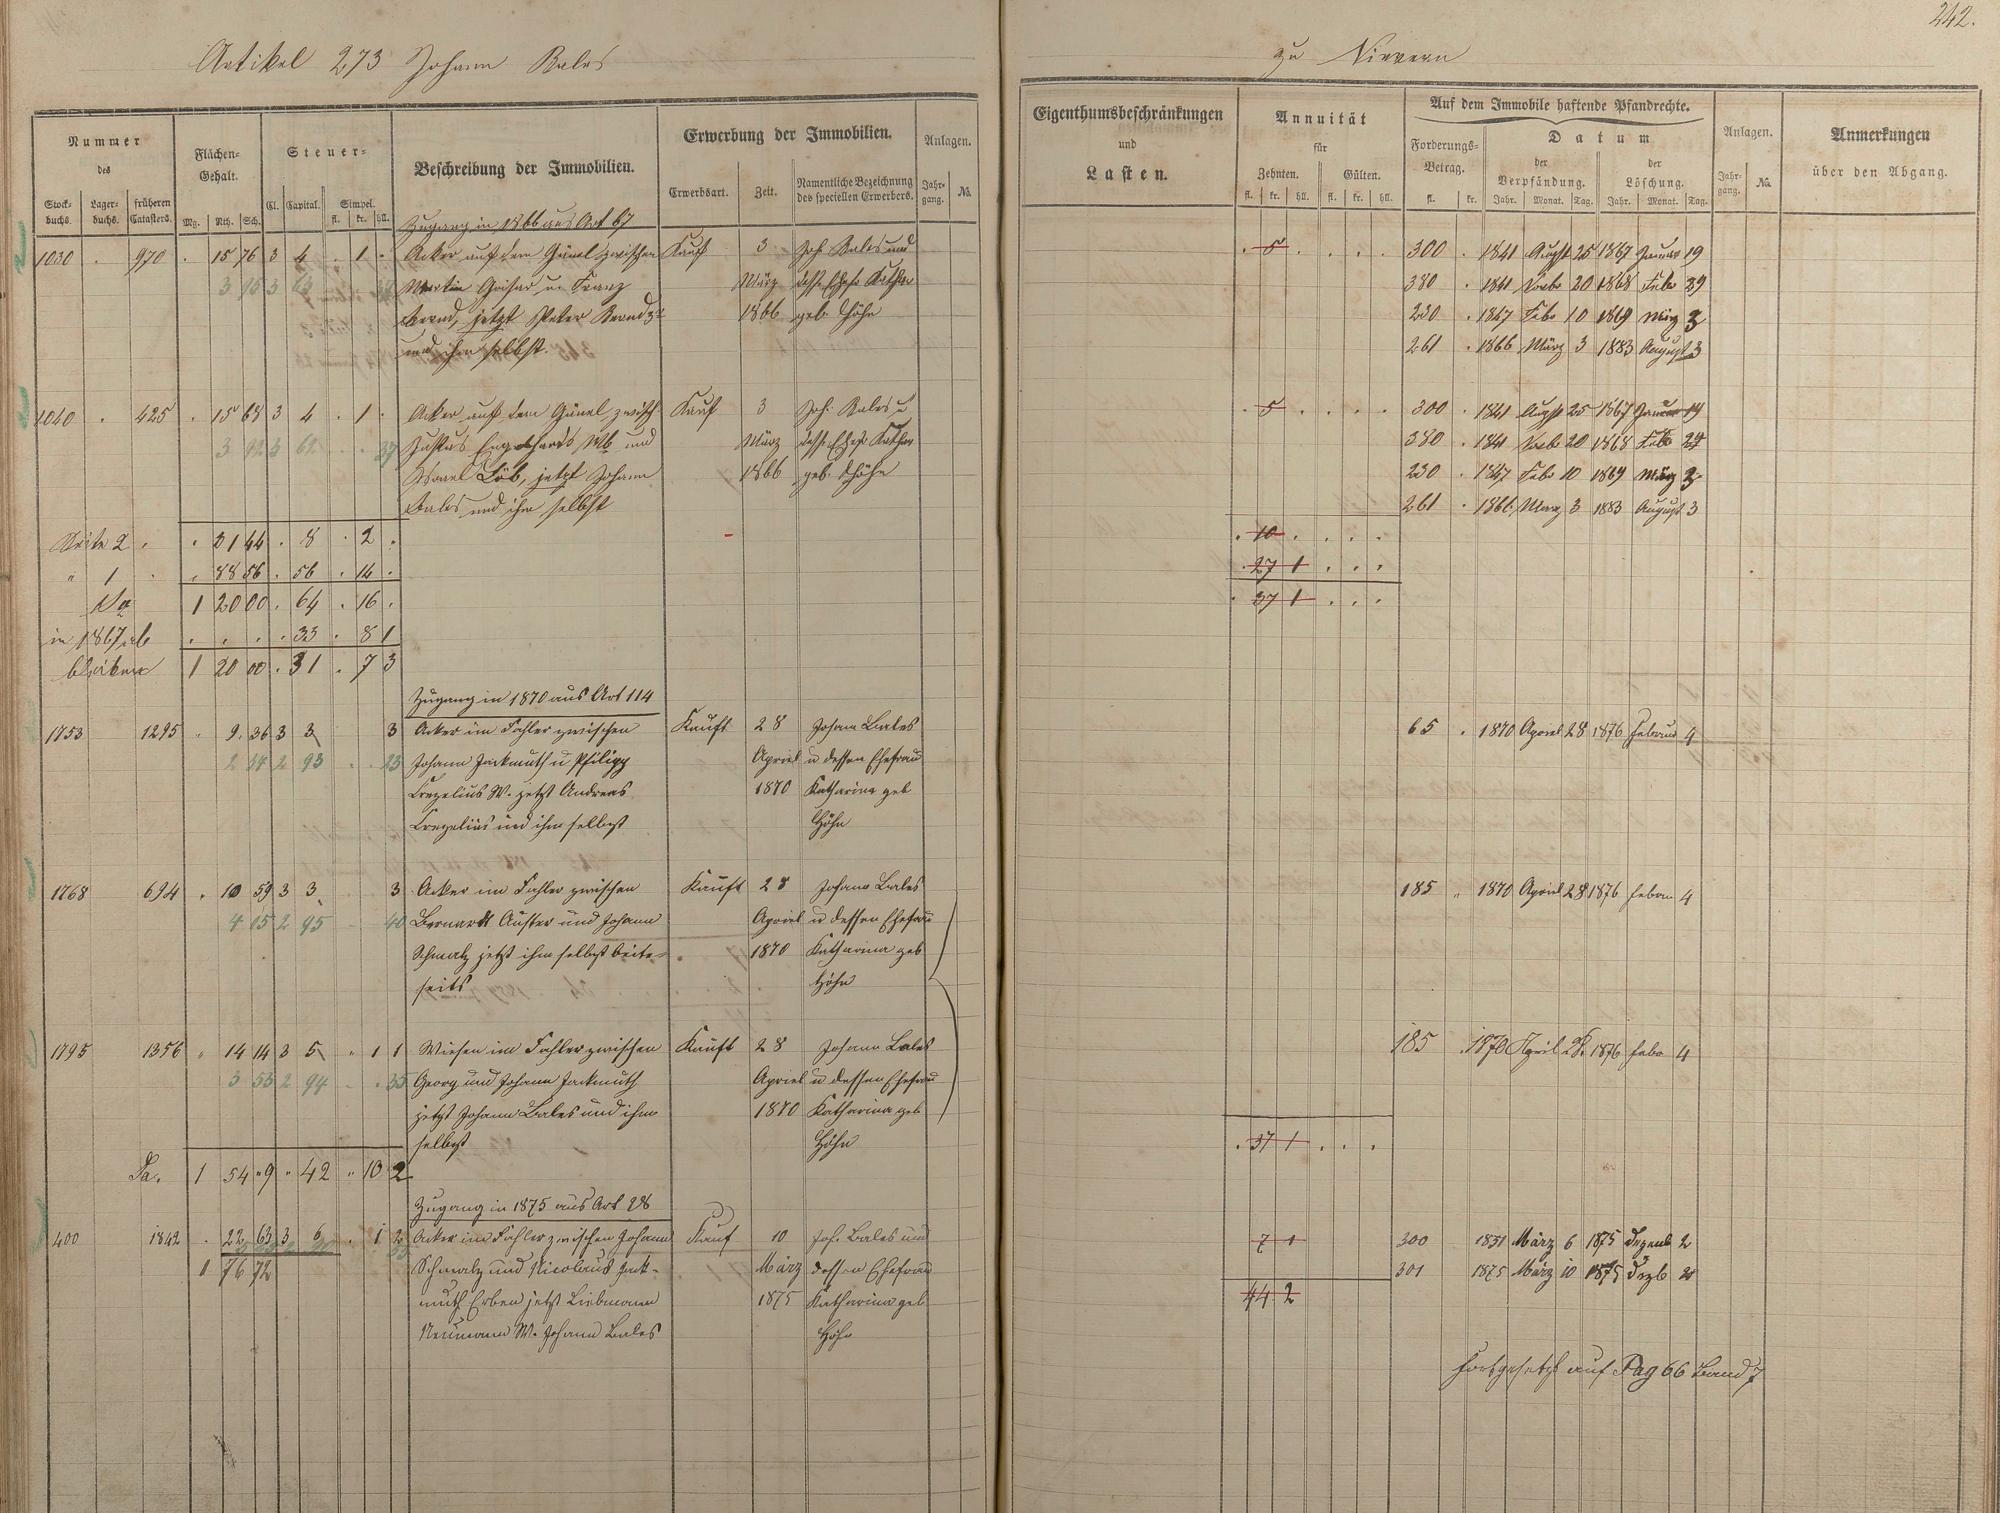 242.
Artikel 273 Johann Bales
zu Nievern
Nummer des
Stock-buchs. Lager-buchs. früheren Catasters.
Flächen-Gehalt.
Mg. Rth. Sch.
Steuer-
Cl. Capital. Simpel.
fl. kr. hll.
Beschreibung der Immobilien.
Erwerbung der Immobilien.
Erwerbsart. Zeit. Namentliche Bezeichnung des speciellen Erwerbers.
Anlagen.
Jahr-gang. No.
Eigenthumsbeschränkungen
und
Lasten.
Annuität
für
Zehnten. Gülten.
fl. kr. hll. fl. kr. hll.
Auf dem Immobile haftende Pfandrechte.
Forderungs-Betrag.
fl. kr.
Datum
der Verpfändung. der Löschung.
Jahr. Monat. Tag. Jahr. Monat. Tag.
Anlagen.
Jahr-gang. No.
Anmerkungen
über den Abgang.
Zugang in 1866 aus Art 67
1030 . 970 . 15 76 3 4 . 1 . Acker auf dem Günel zwischen Kauf 3 Joh. Bales und . 5 . . . . 300 . 1841 August 25 1867 Januar 19
März 380 . 1841 20 1868 Febr 29
jetzt Peter 1866 geb. Höhn 230 . 1847 Febr 10 1869 März 3
und ihm selbst. 261 . 1866 März 3 1883 August 3
1040 . 425 . 15 68 3 4 . 1 . Acker auf dem Günel zwisch Kauf 3 Joh. Bales u . 5 . . . . 300 . 1841 Augst 25 1867 Januar 19
3 92 3 und März 380 . 1841 20 1868 Febr
Löb, jetzt Johann 1866 geb. Höhn 230 . 1847 Febr 10 1869 März 3
Bales und ihm selbst 261 . 1866 März 3 1883 August 3
Seite 2 . . 31 44 . 8 . 2 . . 10 . . . .
" 1 . . 88 56 . 56 . 14 . . 27 1 . . .
Sa 1 20 00 . 64 . 16 . . 37 1 . . .
in 1867 ab . . . . 33 . 8 1
bleiben 1 20 00 . 31 . 7 3
Zugang in 1870 aus Art 114
1753 1295 " 9. 36 3 3 3 Acker im Fahler zwischen Kauft 28 Johann Bales 65 . 1870 Apriel 28 1876 Februar 4
2 34 2 93 . . 23 Johann Jackmuth u Philipp Apriel u dessen Ehefrau
Crezelius W. jetzt Andreas 1870 Katharina geb
Crezelius und ihm selbst Höhn
1768 694 " 10 59 3 3 3 Acker im Fahler zwischen Kauft 28 Johann Bales 185 " 1870 Apriel 28 1876 Febru 4
4 05 2 95 40 Bernardt Auster und Johann Apriel u dessen Ehefrau
Schmalz jetzt ihm selbst beite- 1870 Katharina geb
seits Höhn
1795 1356 " 14 14 3 5 " 1 1 Wiesen im Fahler zwischen Kauft 28 Johann Bales 185 . 1870 April 28. 1876 Febr 4
3 53 2 94 . . 35 Georg und Johann Jackmuth Apriel u dessen Ehefrau
jetzt Johann Bales und ihm 1870 Katharina geb
selbst Höhn . 37 1 . . .
Sa. 1 54 " 9 " 42 " 10 2
Zugang in 1875 aus Art 28
400 1842 . 22 63 3 6 . 1 2 Acker im Fahler zwischen Johann Kauf 10 Joh. Bales und 7 1 300 1851 März 6 1875 Dezemb 2
1 76 72 Schmalz und Nicolaus Jack- März dessen Ehefrau 301 1875 März 10 1875 Dezb 2
muth Erben jetzt Liebmann 1875 Katharina geb 44 2
Neumann W. Johann Bales Höhn
fortgesetzt auf Pag 66 Band 7